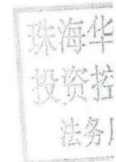 珠海华
投资控
法务